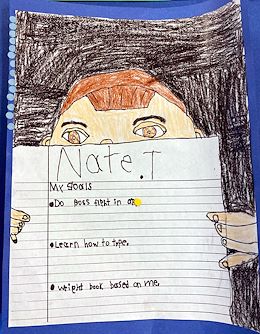 Nate.T
My goals
• Do boss fight in
• Learn how to type.
• Weight book based on me.